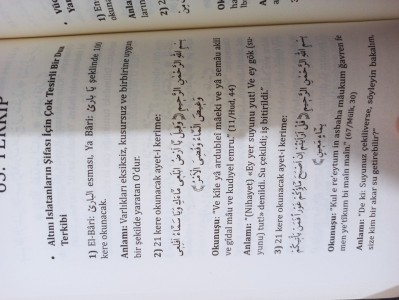 63. TERKİP
• Altını Islatanların Şifası İçin Çok Tesirli Bir Dua
Terkibi
1) El-Bâri: اَلْبَارِئُ esması, Ya Bâri: يَا بَارِئُ şeklinde
kere okunacak.
Anlamı: Varlıkları eksiksiz, kusursuz ve birbirine uygun
bir şekilde yaratan O'dur.
2) 21 kere okunacak ayet-i kerime:
بِسْمِ اللّٰهِ الرَّحْمٰنِ الرَّحِيمِ ﴿ وَقِيلَ يَا اَرْضُ ابْلَعِي مَاءَكِ وَيَا سَمَاءُ اَقْلِعِي
وَغِيضَ الْمَاءُ وَقُضِيَ الْاَمْرُ ﴾
Okunuşu: "Ve kîle yâ ardubleî mâeki ve yâ semâu akliî
ve gîdal mâu ve kudıyel emru." (11/Hud, 44)
Anlamı: "(Nihayet) «Ey yer suyunu yut! Ve ey gök (su-
yunu) tut!» denildi. Su çekildi; iş bitirildi."
3) 21 kere okunacak ayet-i kerime:
بِسْمِ اللّٰهِ الرَّحْمٰنِ الرَّحِيمِ ﴿ قُلْ اَرَاَيْتُمْ اِنْ اَصْبَحَ مَاؤُكُمْ غَوْرًا فَمَنْ يَأْتِيكُمْ
بِمَاءٍ مَعِينٍ ﴾
Okunuşu: "Kul e re'eytum in asbaha mâukum ğavren fe
men ye'tîkum bi mâin maîn." (67/Mülk, 30)
Anlamı: "De ki: Suyunuz çekiliverse, söyleyin bakalım,
size kim bir akar su getirebilir?"